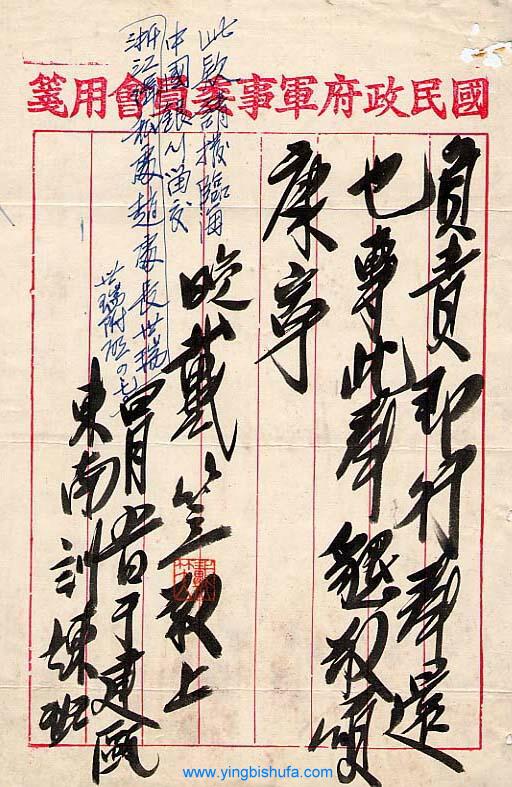 國民政府軍事委員會用箋
負責即行奉還
也專此奉懇敬頌
康寧
晚戴笠敬上
四月廿日于建甌
東南訓練班
此款請撥臨海
中國銀行留交
浙江緝私處趙處長世瑞
世瑞附
www.yingbishufa.com